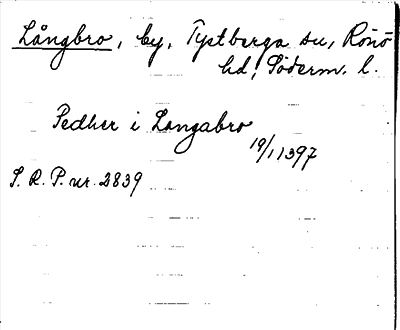 Långbro, by, Tystberga sn, Rönö
hd, Söderm. l.
Pedher i Langabro
19/1 1397
S. R. P. nr. 2839